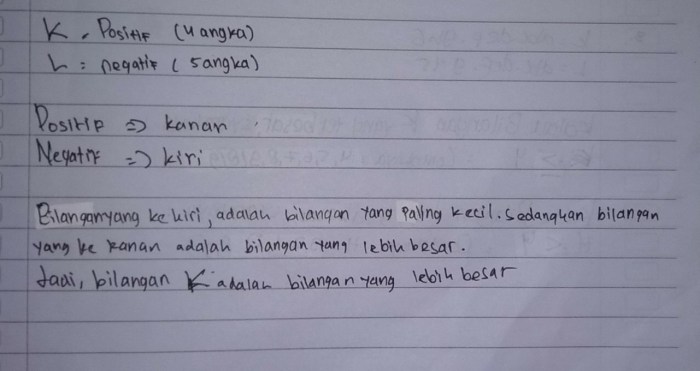 K . Positif (4 angka)
L : negatif ( 5 angka)
Positif => kanan
Negatif => kiri
Bilangan yang ke kiri, adalah bilangan yang paling kecil. sedangkan bilangan
yang ke kanan adalah bilangan yang lebih besar.
Jadi, bilangan K adalah bilangan yang lebih besar